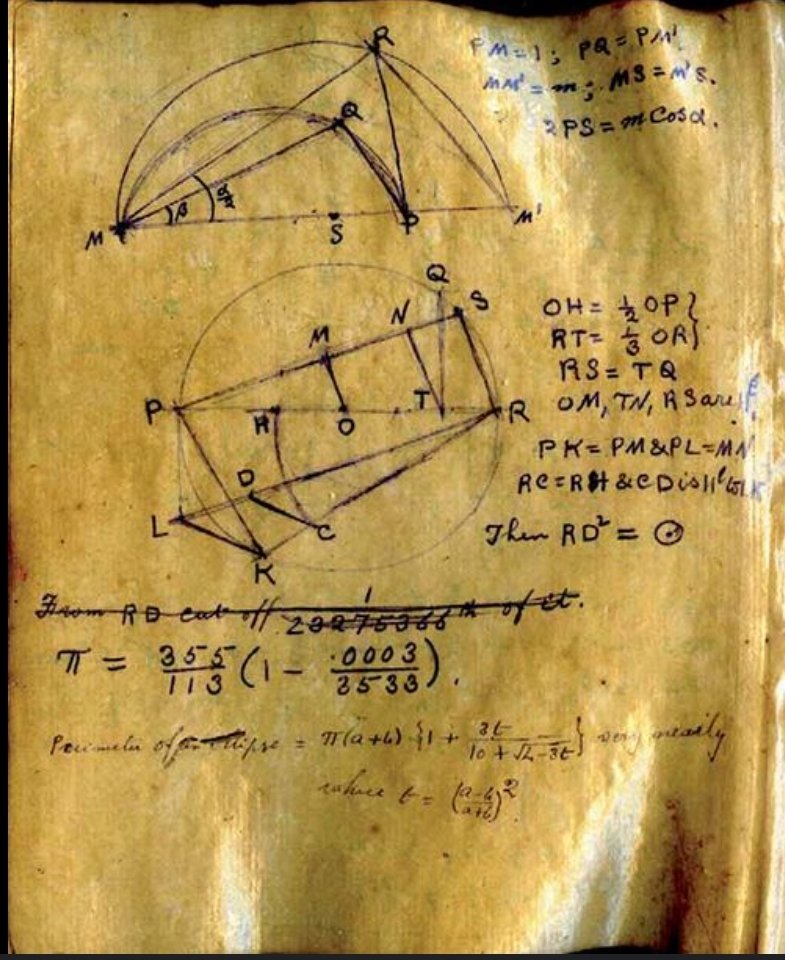 PM=1; PQ=PM'.
MM'=m; MS=M'S.
2PS=m Cosα.
R
Q
β
α/2
M
S
P
M'
Q
S
N
M
P
H
O
T
R
D
L
C
K
OH= 1/2 OP}
RT= 1/3 OR}
RS= TQ
OM, TN, RS are ||l
PK=PM&PL=MN
RC=RH & CD is ||l to LK
Then RD² = ⊙
From RD cut off 1/23275366 th of it.
π = 355/113 (1 - .0003/3533).
Perimeter of an ellipse = π(a+b) {1 + 3t/(10+√4-3t)} very nearly
where t = ((a-b)/(a+b))²